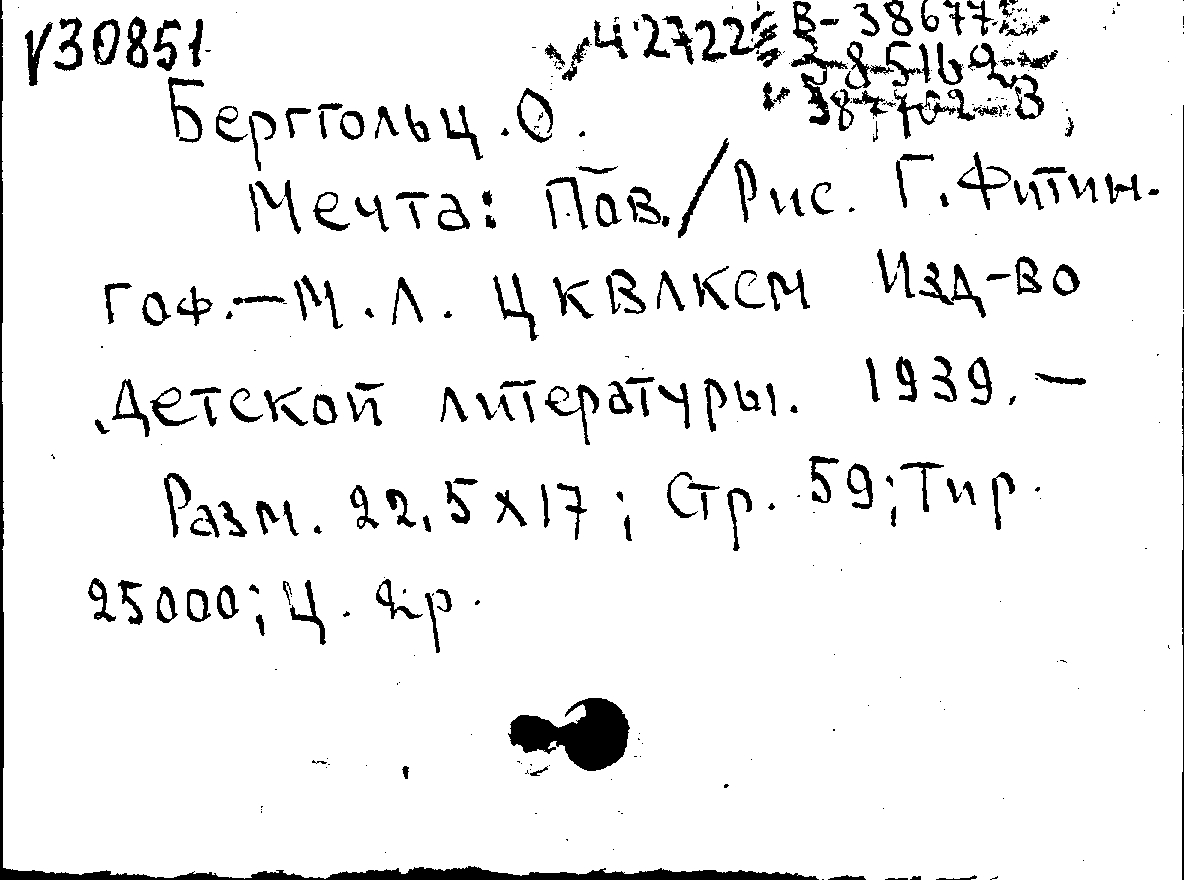 √30851
√42722
В-38677
38516
Берггольц.О.
Мечта: Пов./Рис. Г.Фитин-
гоф.-М.Л. ЦКВЛКСМ Изд-во
Детской литературы. 1939.—
Разм. 22,5х17; Стр. 59; Тир.
25000; Ц. 2р.